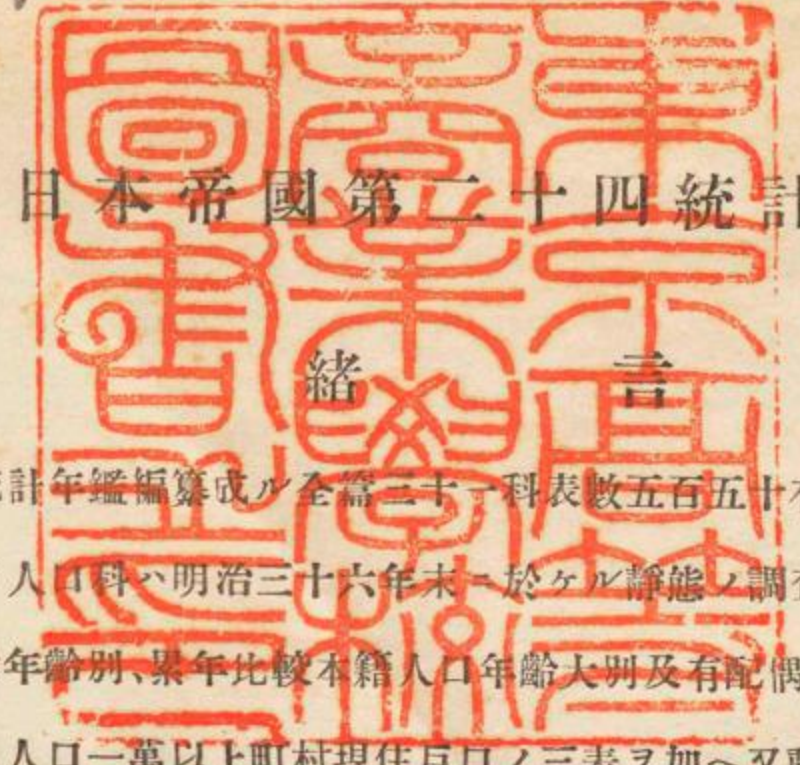 日本帝國第二十四統計
緒言
計年鑑編纂成ル全篇三十一科表數五百五十
人口科ハ明治三十六年末ニ於ケル靜態ノ調
年齡別、累年比較本籍人口年齡大別及有配偶
人口一萬以上町村現住戸口ノ三表ヲ加ヘ又
東京高等
商業學校
圖書之印